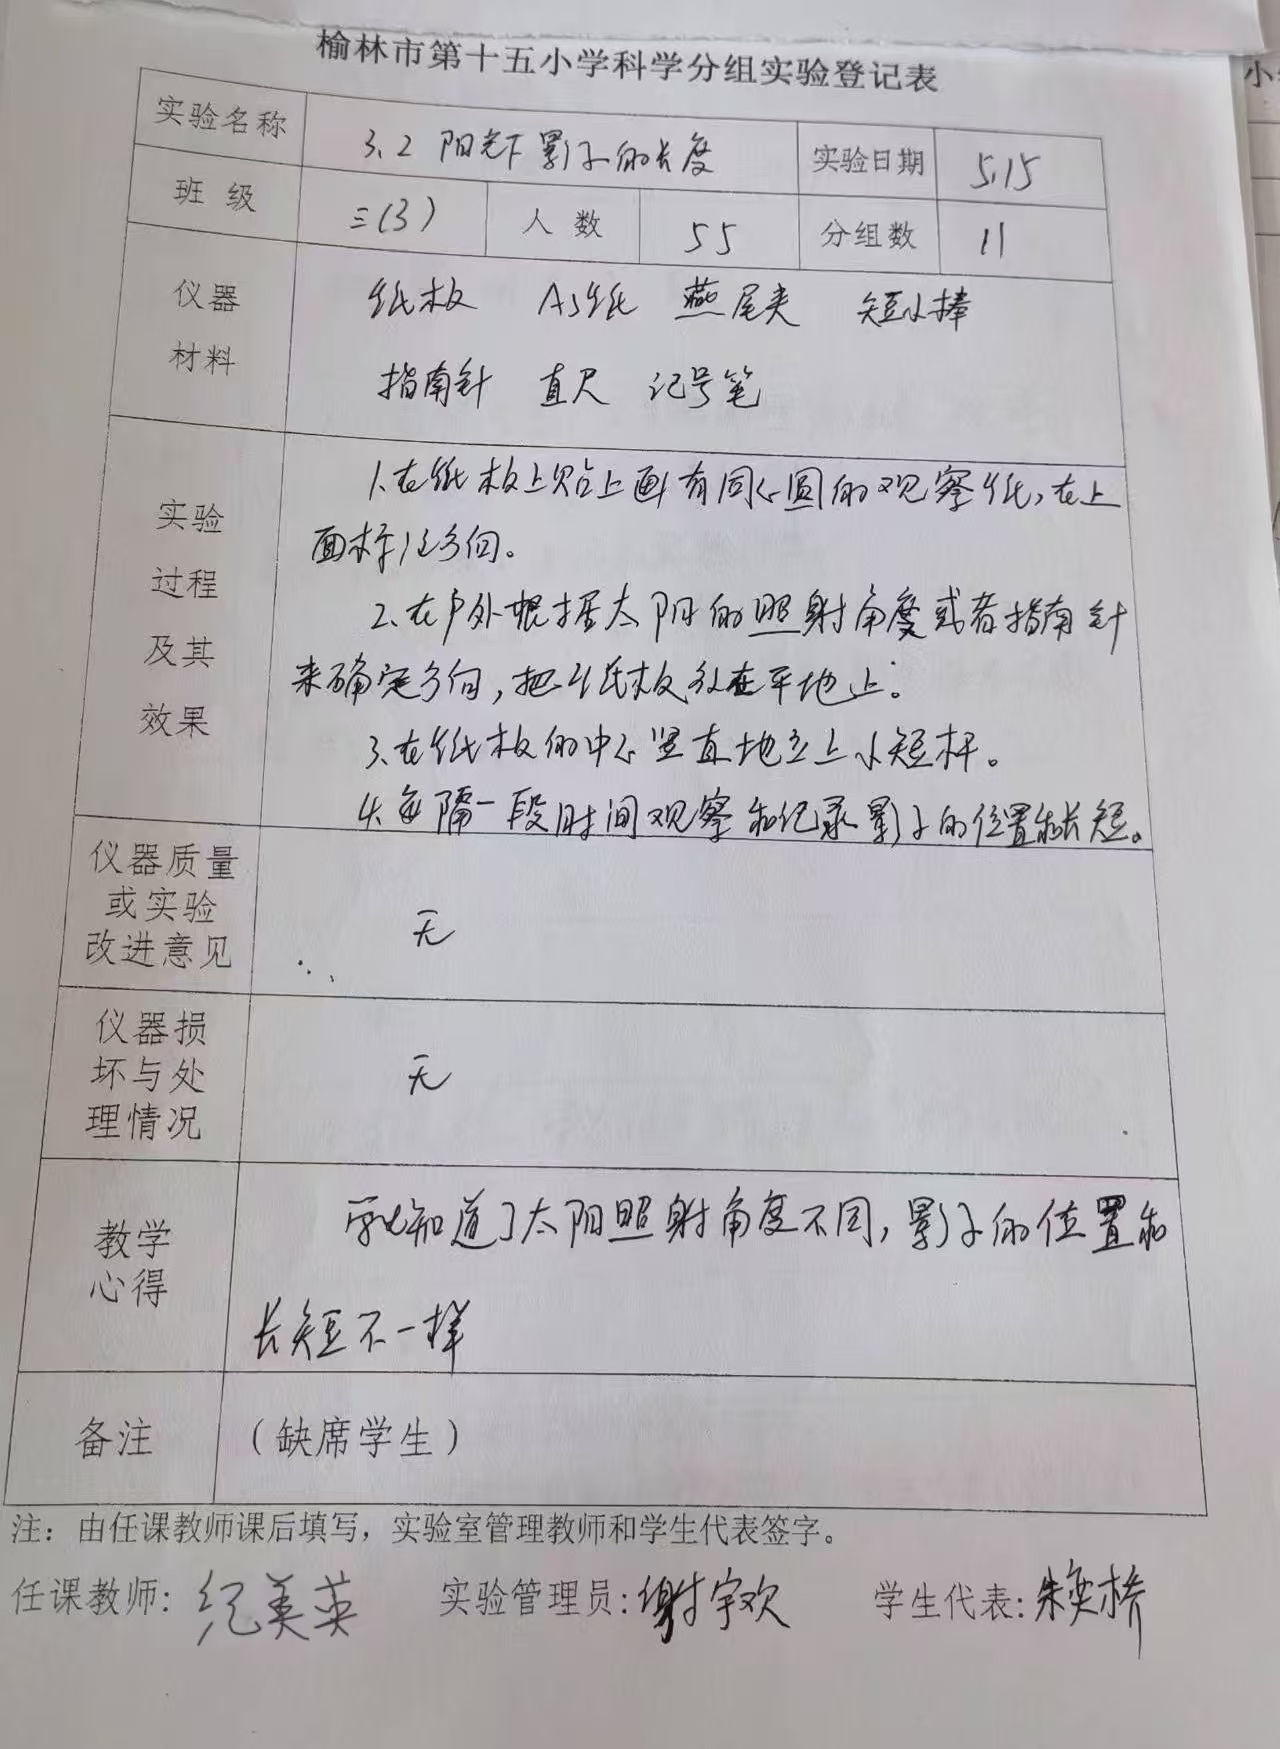 榆林市第十五小学科学分组实验登记表
小
实验名称 3.2 阳光下影子的长度 实验日期 5.15
班 级 三(3) 人 数 55 分组数 11
仪器 纸板 A3纸 燕尾夹 短小棒
材料 指南针 直尺 记号笔
实验
过程
及其
效果
1.在纸板上贴上画有同心圆的观察纸,在上
面标注方向。
2.在户外根据太阳的照射角度或者指南针
来确定方向,把纸板放在平地上。
3.在纸板的中心竖直地立上小短杆。
4.每隔一段时间观察和纪录影子的位置和长短。
仪器质量
或实验
改进意见
无
仪器损
坏与处
理情况
无
教学
心得
知道了太阳照射角度不同,影子的位置和
长短不一样
备注 (缺席学生)
注：由任课教师课后填写，实验室管理教师和学生代表签字。
任课教师：纪美英 实验管理员：谢宇欢 学生代表：朱奕桥